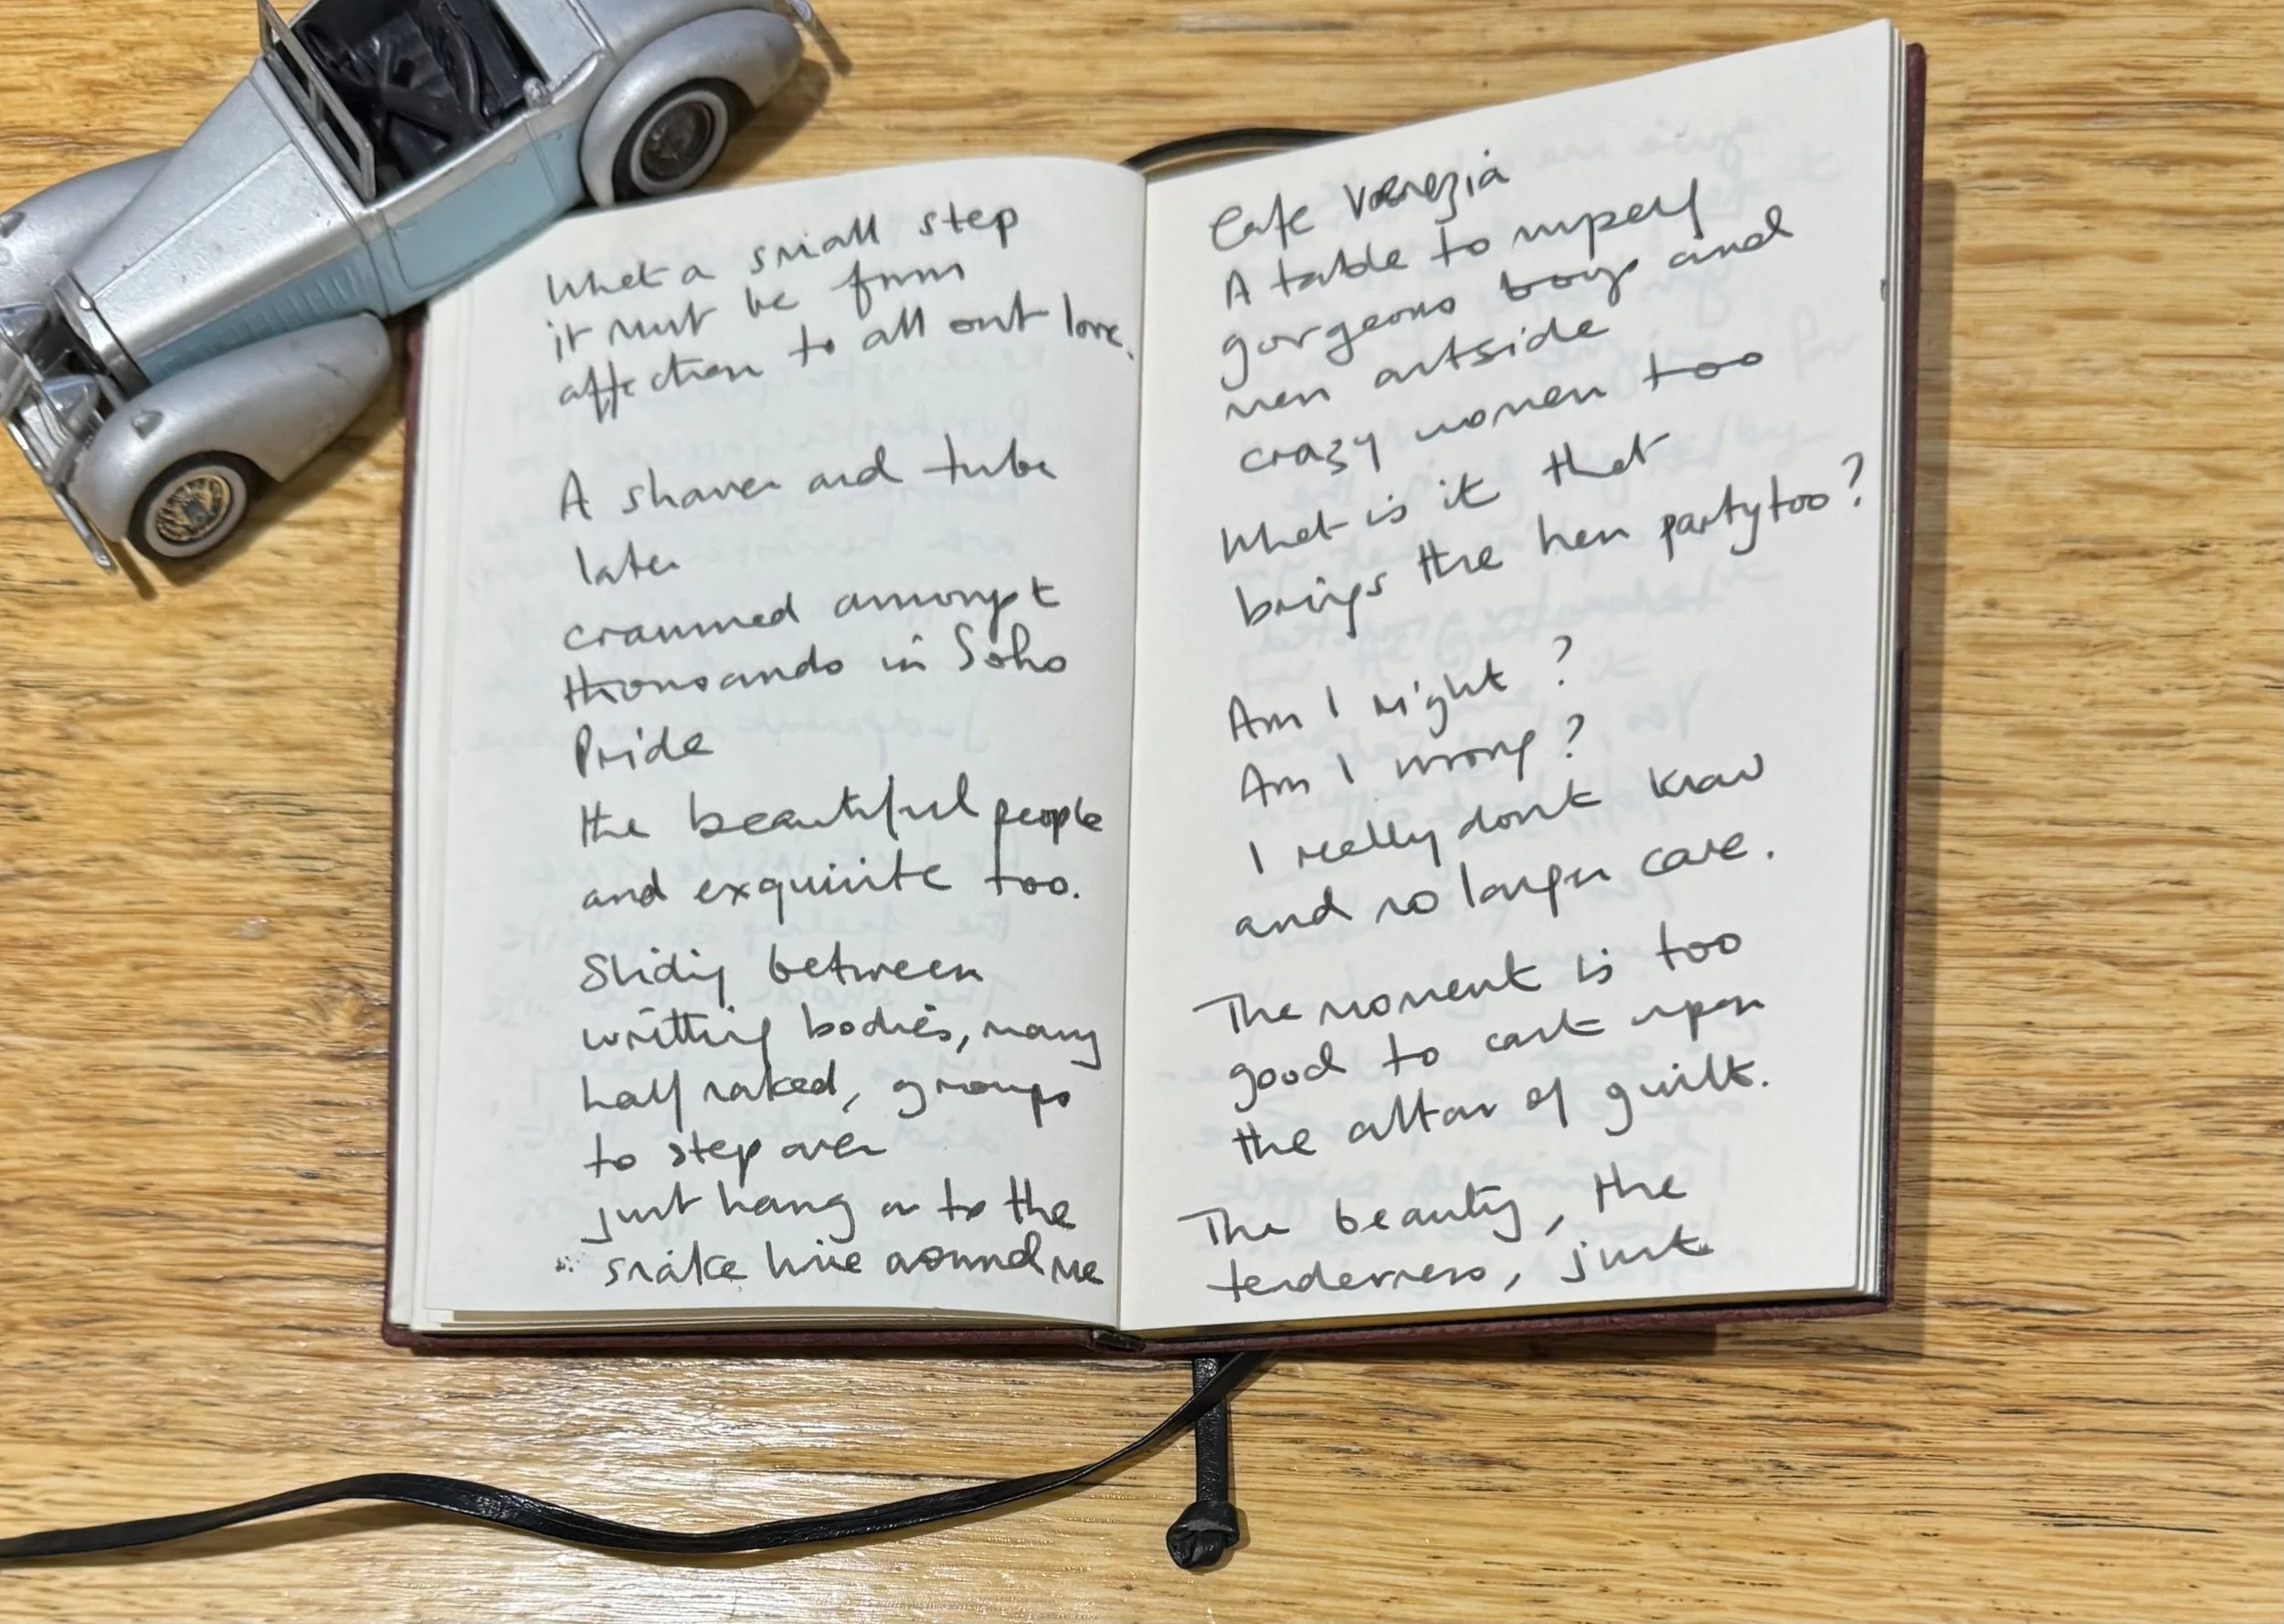 What a small step
it must be from
affection to all out love.
A shower and tube
later
crammed amongst
thousands in Soho
Pride
the beautiful people
and exquisite too.
Sliding between
writhing bodies, many
half naked, groups
to step over
just hang on to the
snake line around me
Cafe Venezia
A table to myself
gorgeous boys and
men outside
crazy women too
What is it that
brings the hen party too?
Am I right?
Am I wrong?
I really dont know
and no longer care.
The moment is too
good to cast upon
the altar of guilt.
The beauty, the
tenderness, just